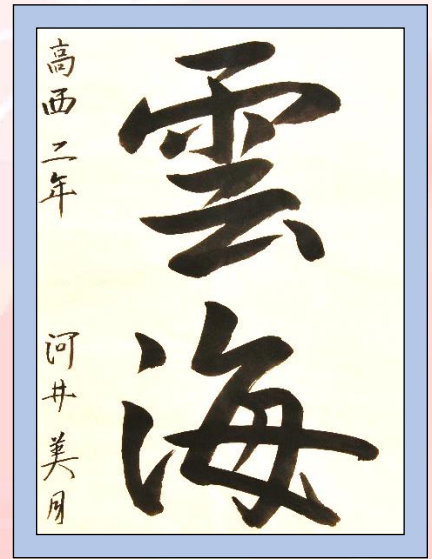 雲海
高西二年 河井美月